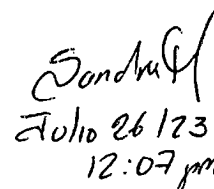 Sandra M
Julio 26/23
12:07 pm